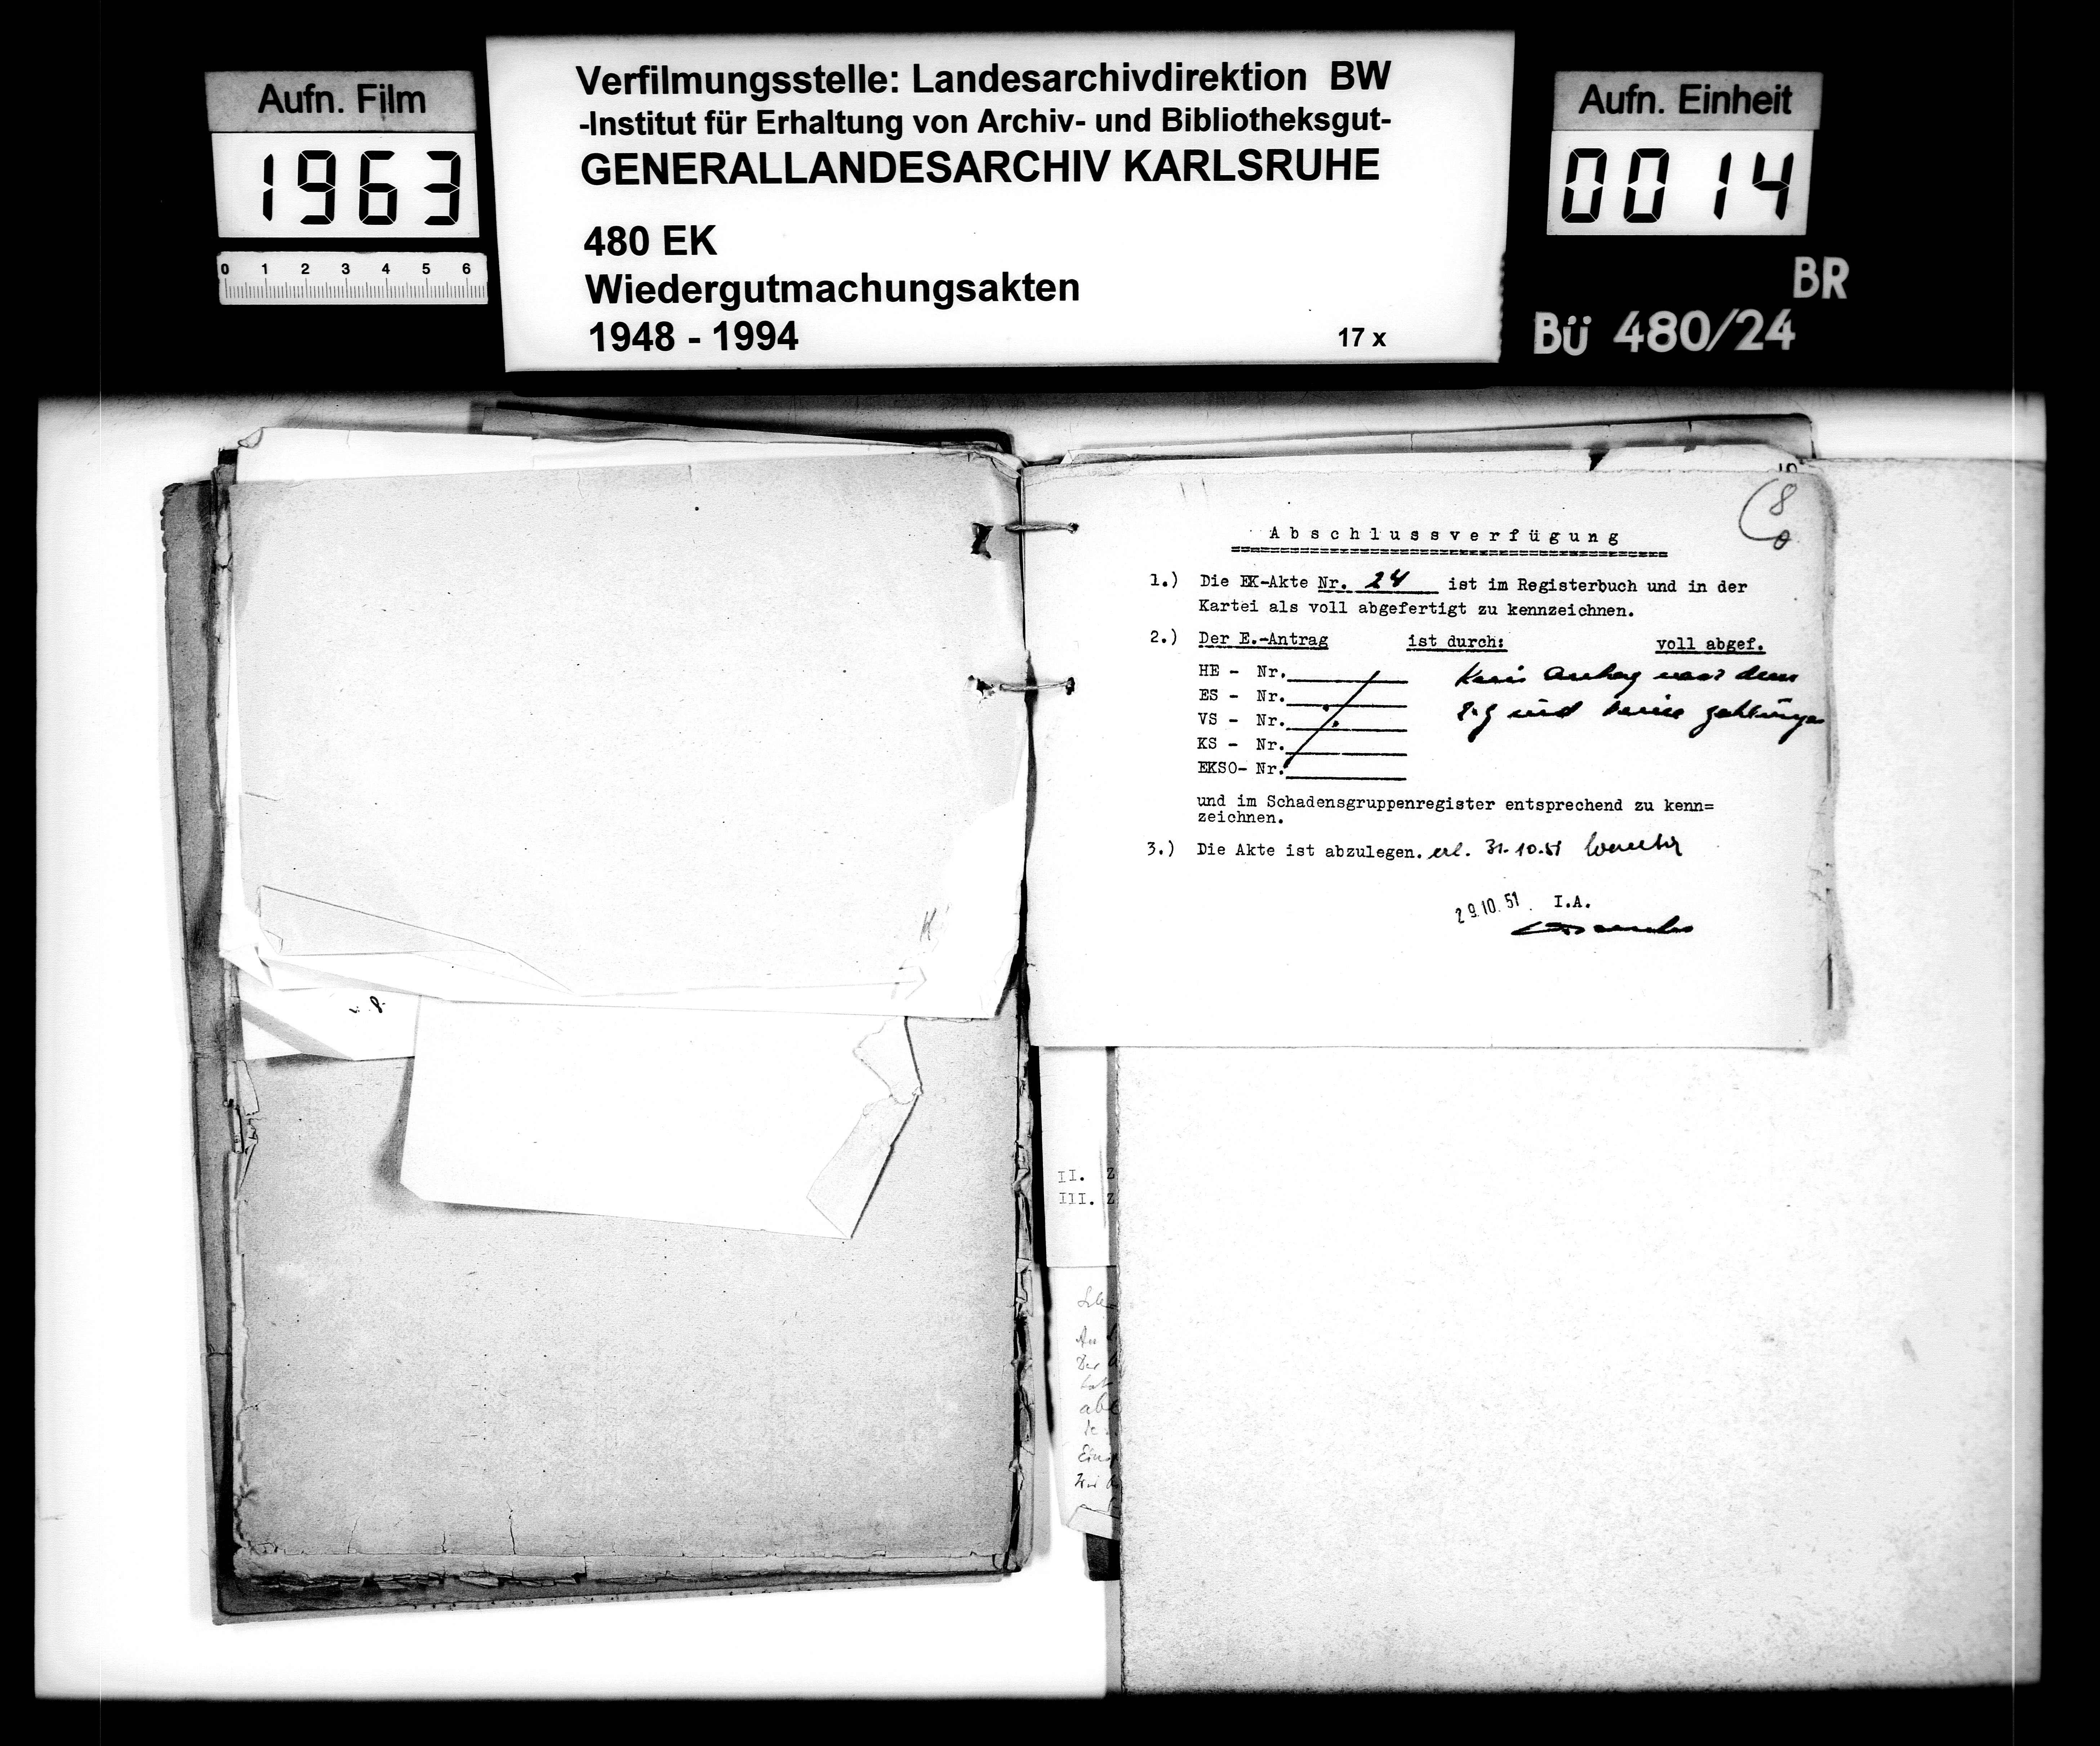 Aufn. Film
1963
0 1 2 3 4 5 6
Verfilmungsstelle: Landesarchivdirektion BW
-Institut für Erhaltung von Archiv- und Bibliotheksgut-
GENERALLANDESARCHIV KARLSRUHE
480 EK
Wiedergutmachungsakten
1948 - 1994
17 x
Aufn. Einheit
0014
BR
Bü 480/24
8
Abschlussverfügung
1.) Die EK-Akte Nr. 24 ist im Registerbuch und in der
Kartei als voll abgefertigt zu kennzeichnen.
2.) Der E.-Antrag ist durch: voll abgef.
HE - Nr.
ES - Nr.
VS - Nr.
KS - Nr.
EKSO- Nr.
Kein Antrag nach dem
und keine Zahlungen
und im Schadensgruppenregister entsprechend zu kenn=
zeichnen.
3.) Die Akte ist abzulegen. erl. 31.10.51
29.10.51 I.A.
II. Z
III. Z